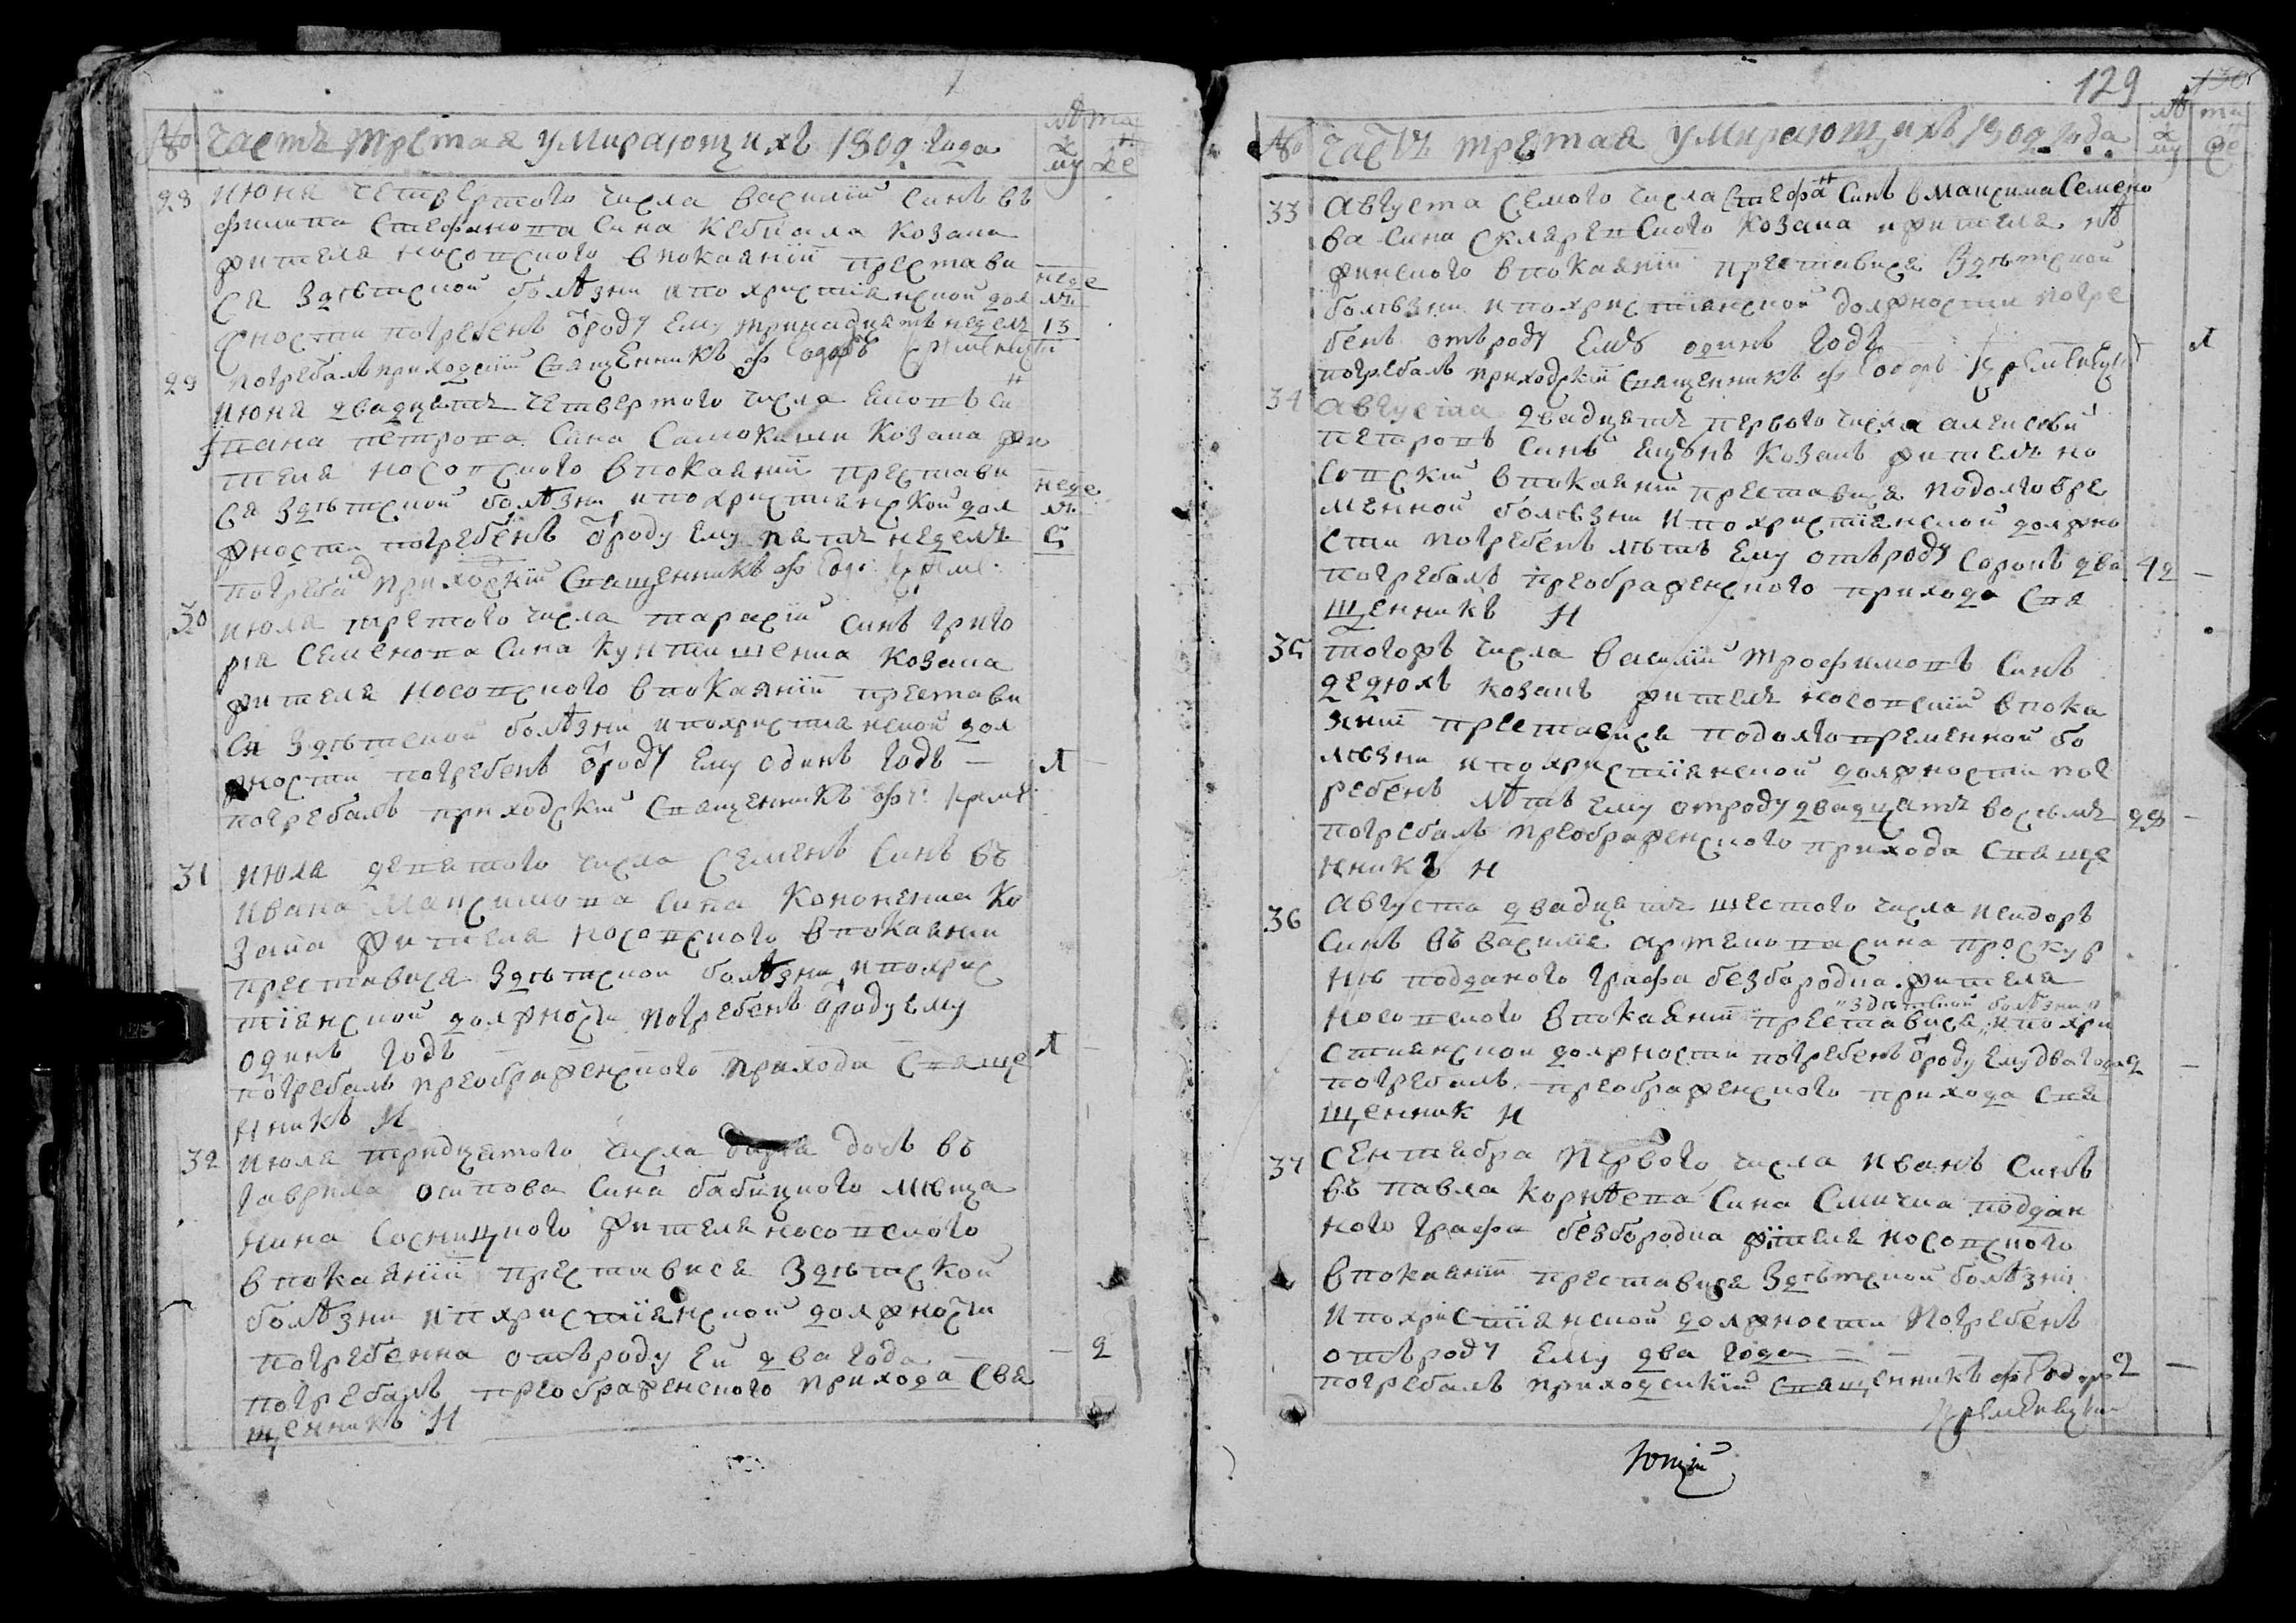 № Часть третая умирающихъ 1809 года лѣта му же
28 июня четвертого числа василій синъ въ
филипа Стефанова сина Кебкала Козака
жителя носовского в покаяніи престави
ся Здѣтской болѣзни и по христіянской дол неде
жности погребенъ ѿроду ему тринадцать недель лъ 13
погребалъ приходскій священникъ
29 июня двадцать четвертого числа си
Петрова сина Самокиши Козака жи
теля носовского в покаяніи престави
ся Здѣтской болѣзни и по христианской дол неде лъ
жности погребенъ ѿроду ему пять недель 5
погреба приходскій священникъ
30 июля третого числа тарасій синъ григо
рия Семенова сина Козака
жителя носовского в покаяніи престави
ся Здѣтской болѣзни и по християнской дол
жности погребенъ ѿроду ему одинъ годъ — 1 —
погребалъ приходскій священникъ
31 июля девятого числа Семенъ синъ въ
ивана Максимова сина Кононенка Ко
зака жителя носовского в покаянии
преставися Здѣтской болѣзни и по хрис
тіянской должности погребенъ ѿроду ему
одинъ годъ — 1 —
погребалъ преображенского прихода Свяще
нникъ Н
32 июля тридцатого числа дочь въ
гаврила осипова сина бабицкого мѣща
нина Сосницкого жителя носовского
в покаяніи преставися Здѣтской
болѣзни и п христіянской должности
погребенна отъроду ей два года — — 2
погребалъ преображенского прихода Свя
щенникъ Н
129 130
№ Часть третая умирающихъ 1809 года лѣ та му же
33 Августа семого числа Стефанъ Синъ в Максима Семено
ва сина Скляревского Козака жителя нѣ
жинского в покаяніи преставися Здѣтской
болѣзни и по христіянской должности погре
бенъ отъроду ему одинъ годъ 1
погребалъ приходскій священникъ
34 Августа двадцать первого числа алексѣй
петровъ синъ Козакъ житель но
совскій в покаяніи преставися по долговре
менной болѣзни и по христіянской должно
сти погребенъ лѣтъ ему отъроду сорокъ два 42 —
погребалъ преображенского прихода Свя
щенникъ Н
35 тогожъ числа василій трофимовъ синъ
дедюхъ козакъ житель носовскій в пока
яніи преставися по долговременной бо
лѣзни и по христіянской должности пог
ребенъ лѣтъ ему отроду двадцать восьмъ 28 —
погребалъ преображенского прихода Свяще
нникъ Н
36 Августа двадцать шестого числа исидоръ
синъ въ василія артемовасина проскур
нѣ подданого графа безбородка жителя
носовского в покаяніи преставися "здѣтской болѣзни" и по хри
стиянской должности погребенъ ѿроду ему два года 2 —
погребалъ преображенского прихода Свя
щенник Н
37 Сентября первого числа иванъ синъ
въ павла Корнѣева сина Смичка поддан
ного графа безбородка жителя носовского
в покаяніи преставися Здѣтской болѣзни
и по христіянской должности погребенъ
отъроду ему два года — — — 2 —
погребалъ приходскій священникъ